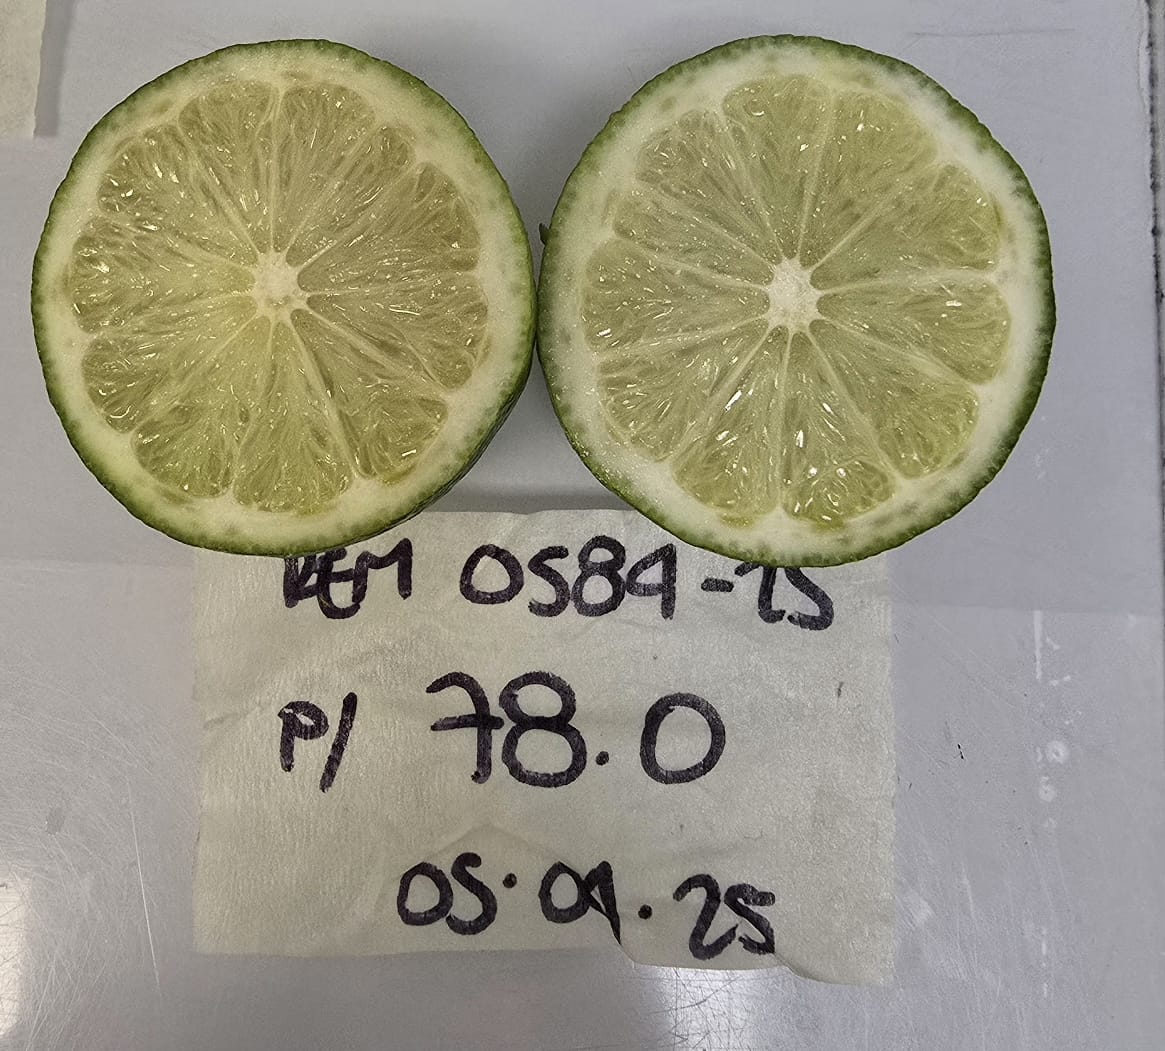 REM 0584-25
P/ 78.0
05.09.25